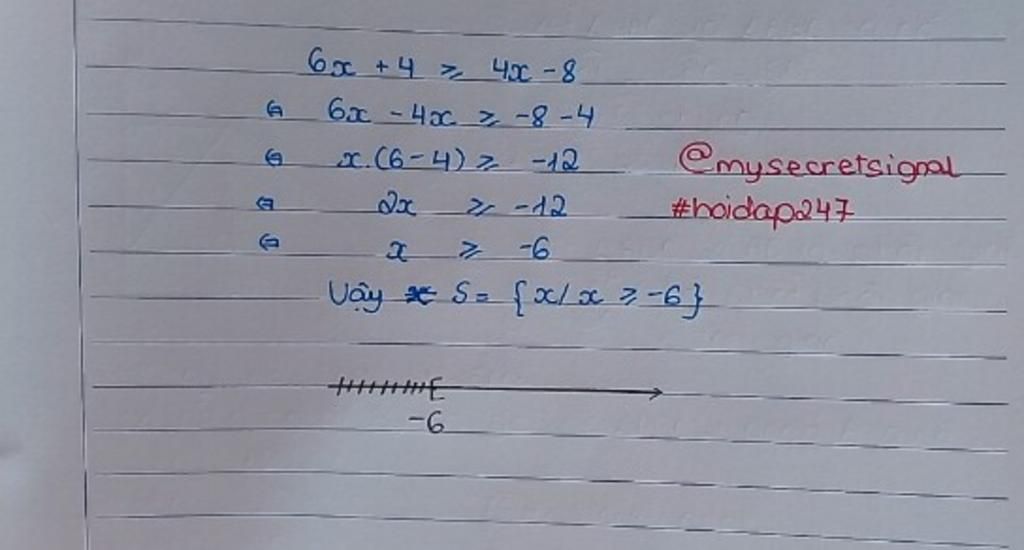 6x + 4 ⩾ 4x - 8
⇔ 6x - 4x ⩾ -8 - 4
⇔ x.(6-4) ⩾ -12
@mysecretsignal
⇔ 2x ⩾ -12
#hoidap247
⇔ x ⩾ -6
Vậy S = {x/ x ⩾ -6}
-6